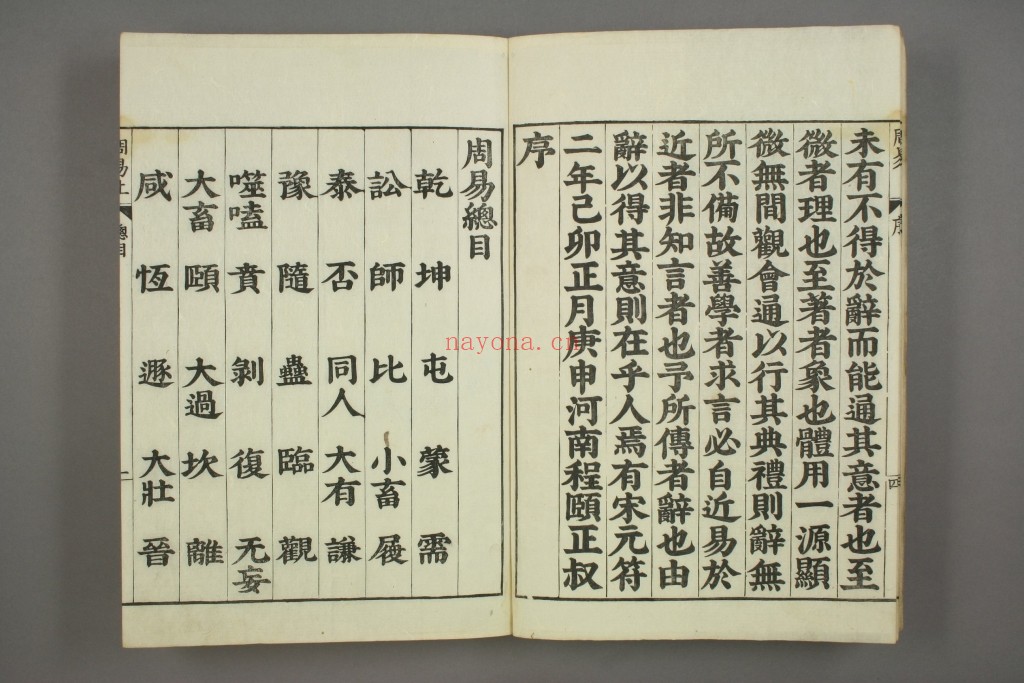 未有不得於辭而能通其意者也至
微者理也至著者象也體用一源顯
微無間觀會通以行其典禮則辭無
所不備故善學者求言必自近易於
近者非知言者也予所傳者辭也由
辭以得其意則在乎人焉有宋元符
二年己卯正月庚申河南程頤正叔
序
四
周易總目
乾 坤 屯 蒙 需
訟 師 比 小畜 履
泰 否 同人 大有 謙
豫 隨 蠱 臨 觀
噬嗑 賁 剝 復 无妄
大畜 頤 大過 坎 離
咸 恆 遯 大壯 晉
nayona.cn